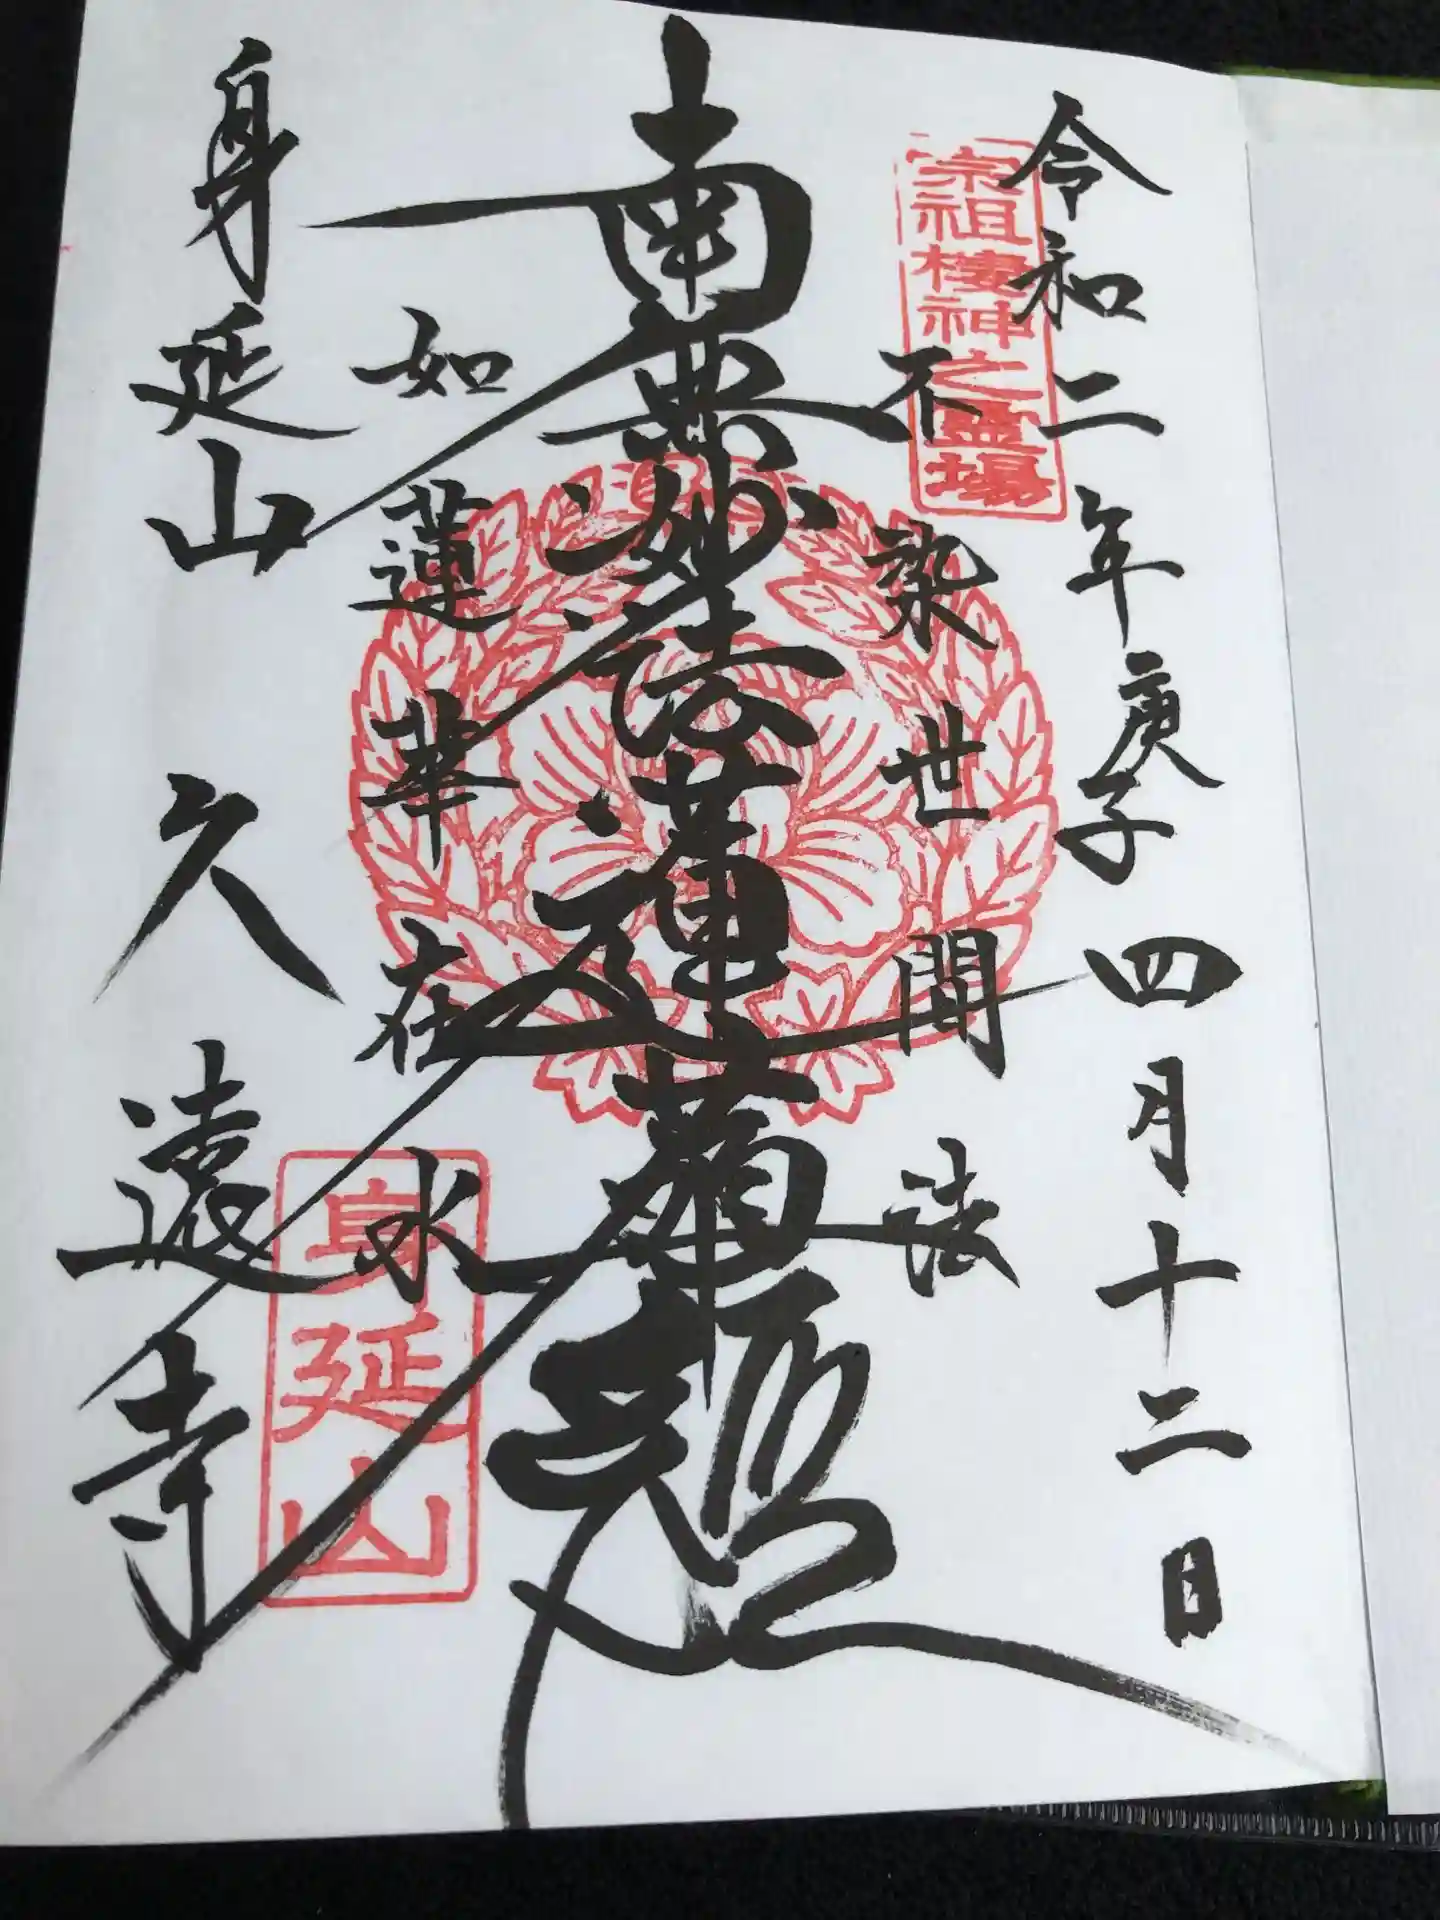 宗祖棲神之霊場
令和二年庚子四月十二日
不染世間法
南無妙法蓮華経
如蓮華在水
身延山
身延山久遠寺